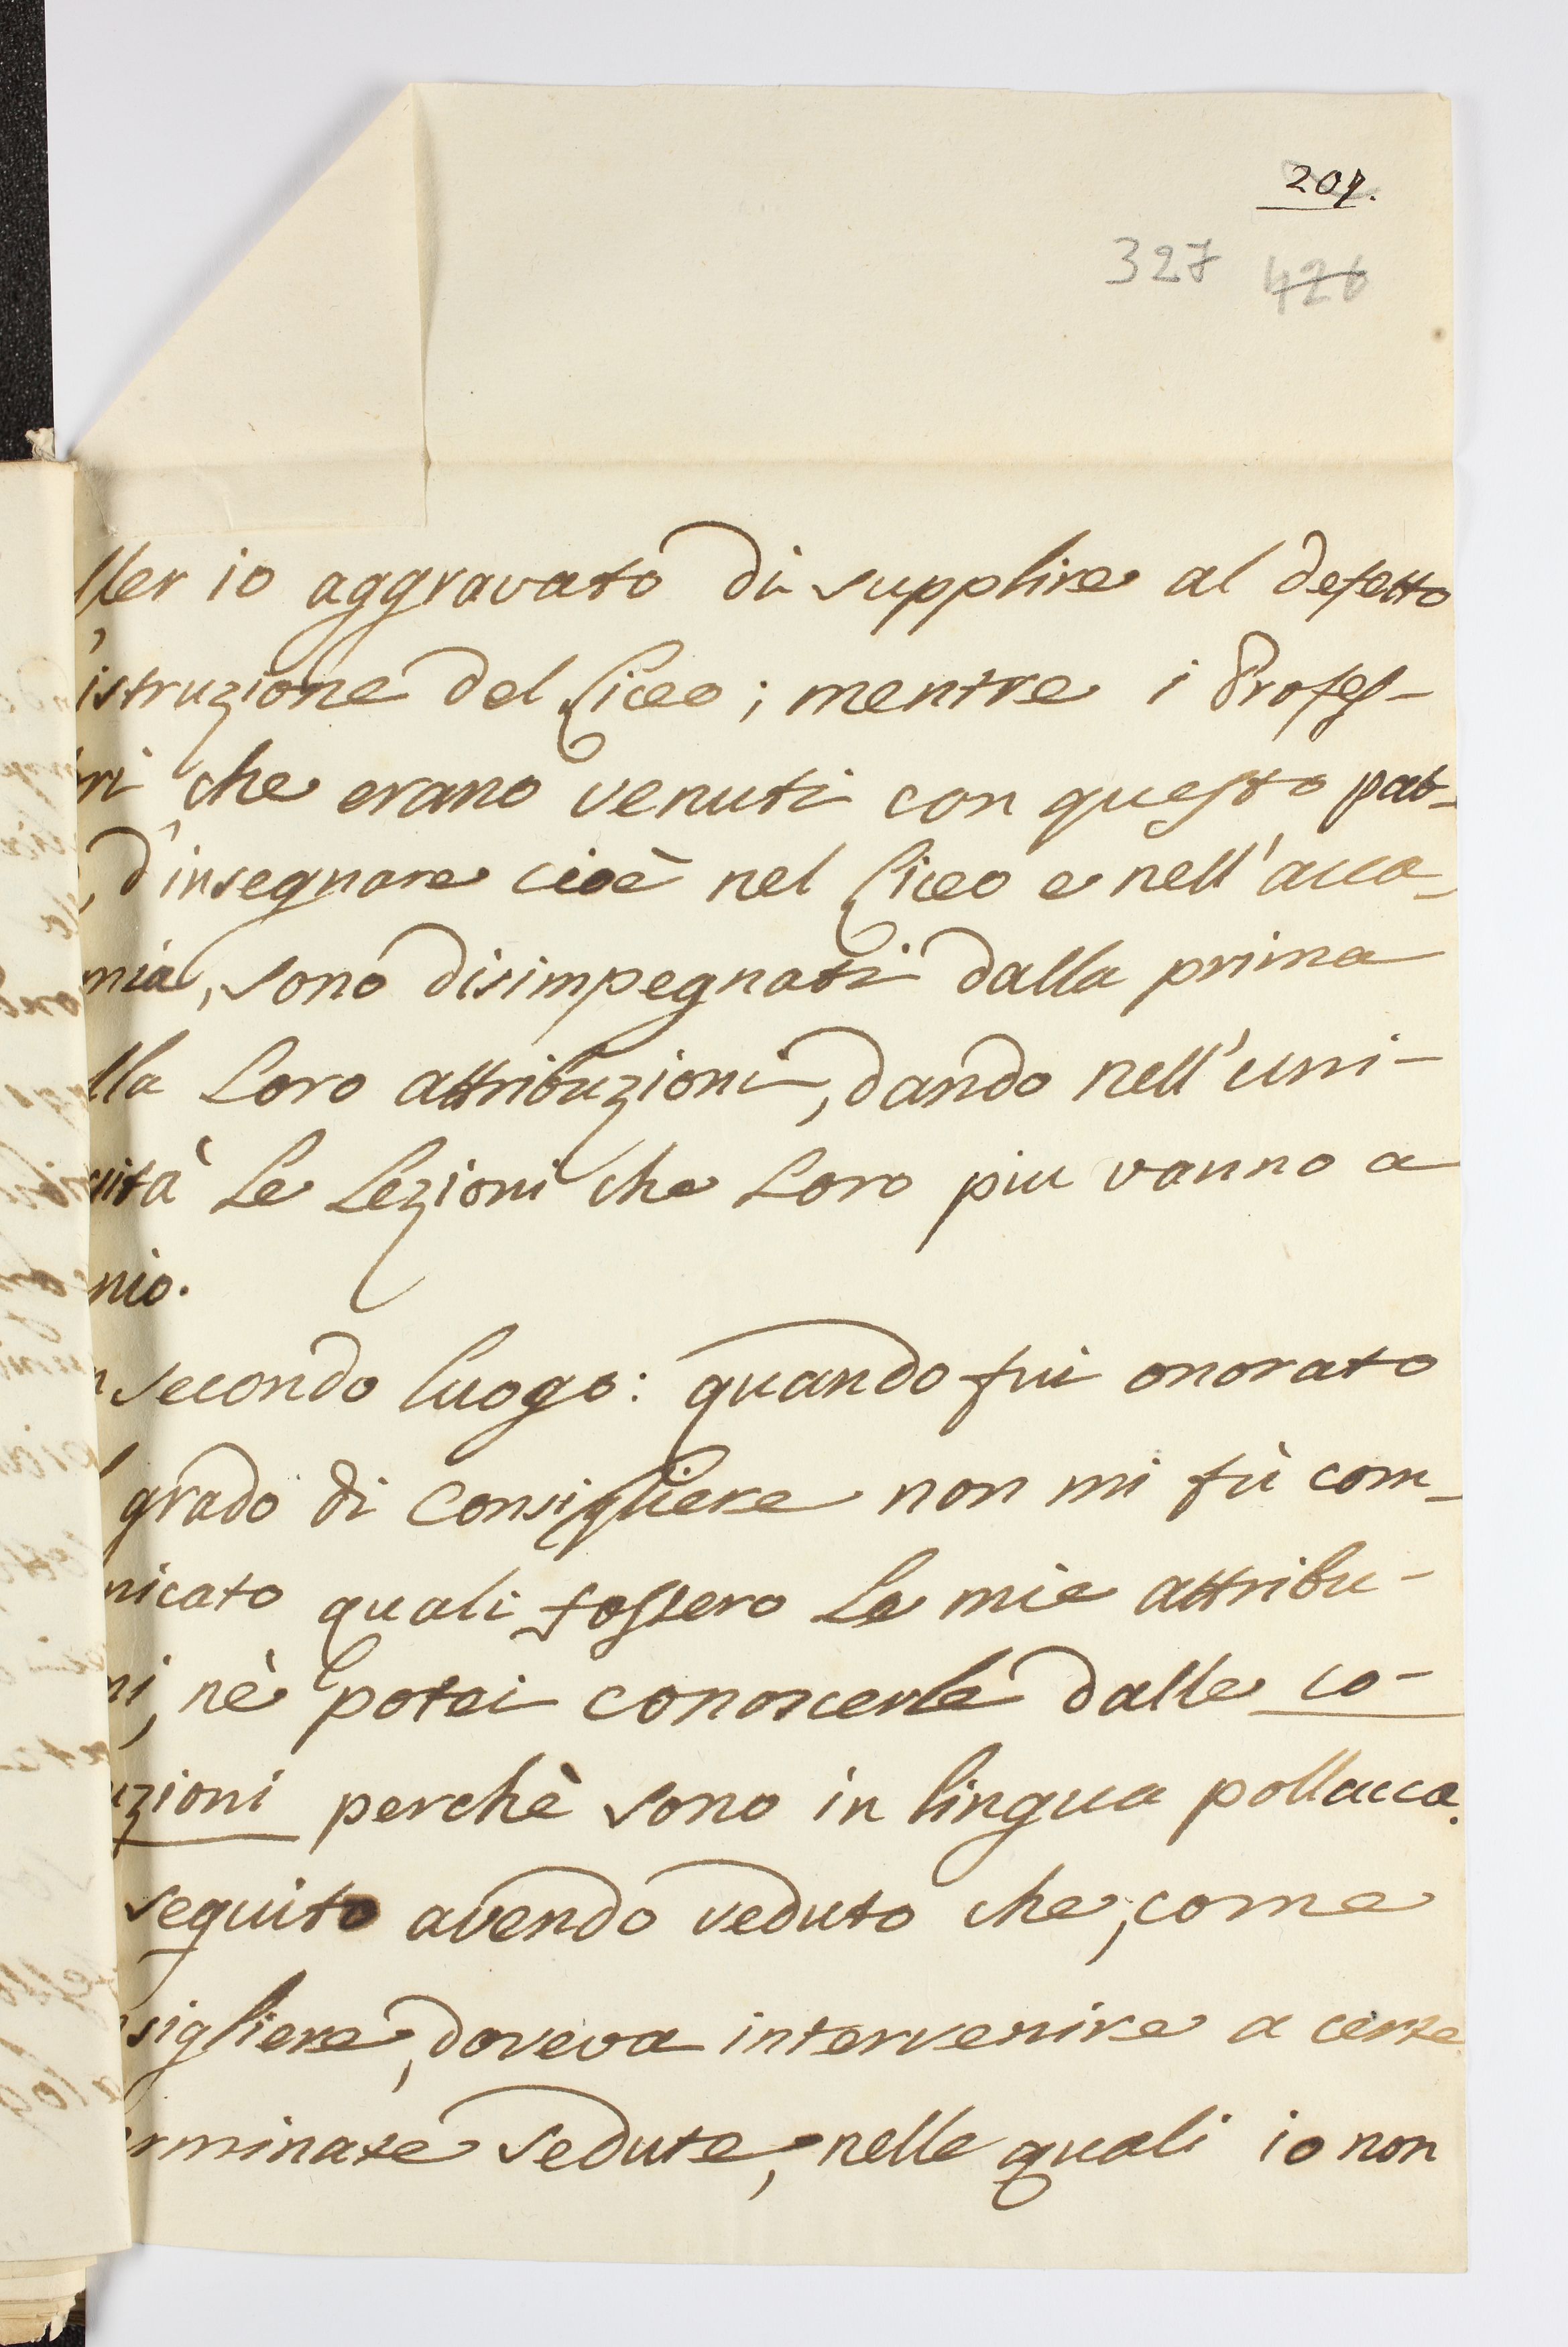 207.
327 426
sser io aggravato di supplire al defetto
'istruzione del Liceo; mentre i Profes-
ri che erano venuti con questo pat-
, d'insegnare cioè nel Liceo e nell'acca-
mia, sono disimpegnati dalla prima
lla Loro attribuzioni, dando nell'uni-
sità Le Lezioni che Loro piu vanno a
nio.
n secondo luogo: quando fui onorato
l grado di Consigliere non mi fù com-
nicato quali fossero Le mie attribu-
ni, nè potei conoscerle dalle co-
uzioni perchè sono in lingua pollacca.
seguito avendo veduto che, come
sigliere, doveva intervenire a certe
erminate sedute, nelle quali io non